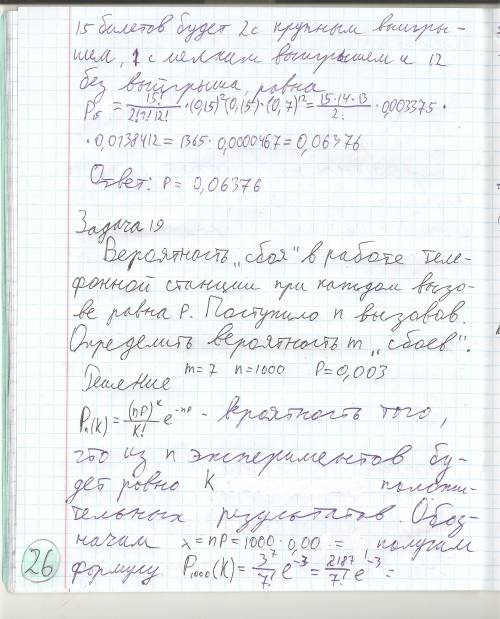 15 билетов будет 2 с крупным выигры-
шем, 1 с мелким выигрышем и 12
без выигрыша, равна
P₁₅ = 15!/(2!1!12!) · (0,15)²(0,15)·(0,7)¹² = 15·14·13/2! · 0,003375 ·
· 0,0138412 = 1365 · 0,0000467 = 0,06376
Ответ: P = 0,06376
Задача 19
Вероятность „сбоя“ в работе теле-
фонной станции при каждом вызо-
ве равна P. Поступило n вызовов.
Определить вероятность m „сбоев“.
Решение m=7 n=1000 P=0,003
Pₙ(K) = (nP)ᴷ/K! e⁻ⁿᵖ - вероятность того,
что из n экспериментов бу-
дет ровно K положи-
тельных результатов. Обоз-
начим λ = nP = 1000 · 0,00 = получим
формулу P₁₀₀₀(K) = 3⁷/7! e⁻³ = 2187/7! e⁻³ =
26